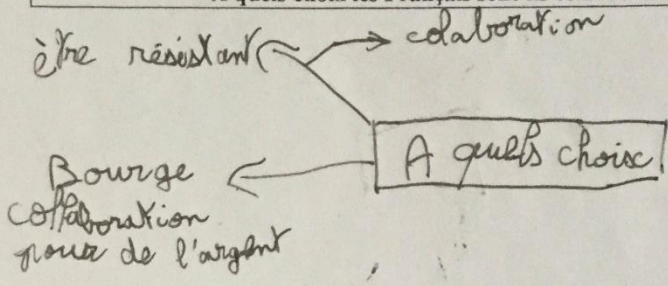 être résistant
colaboration
A quels choix
Bourge
collaboration
pour de l'argent